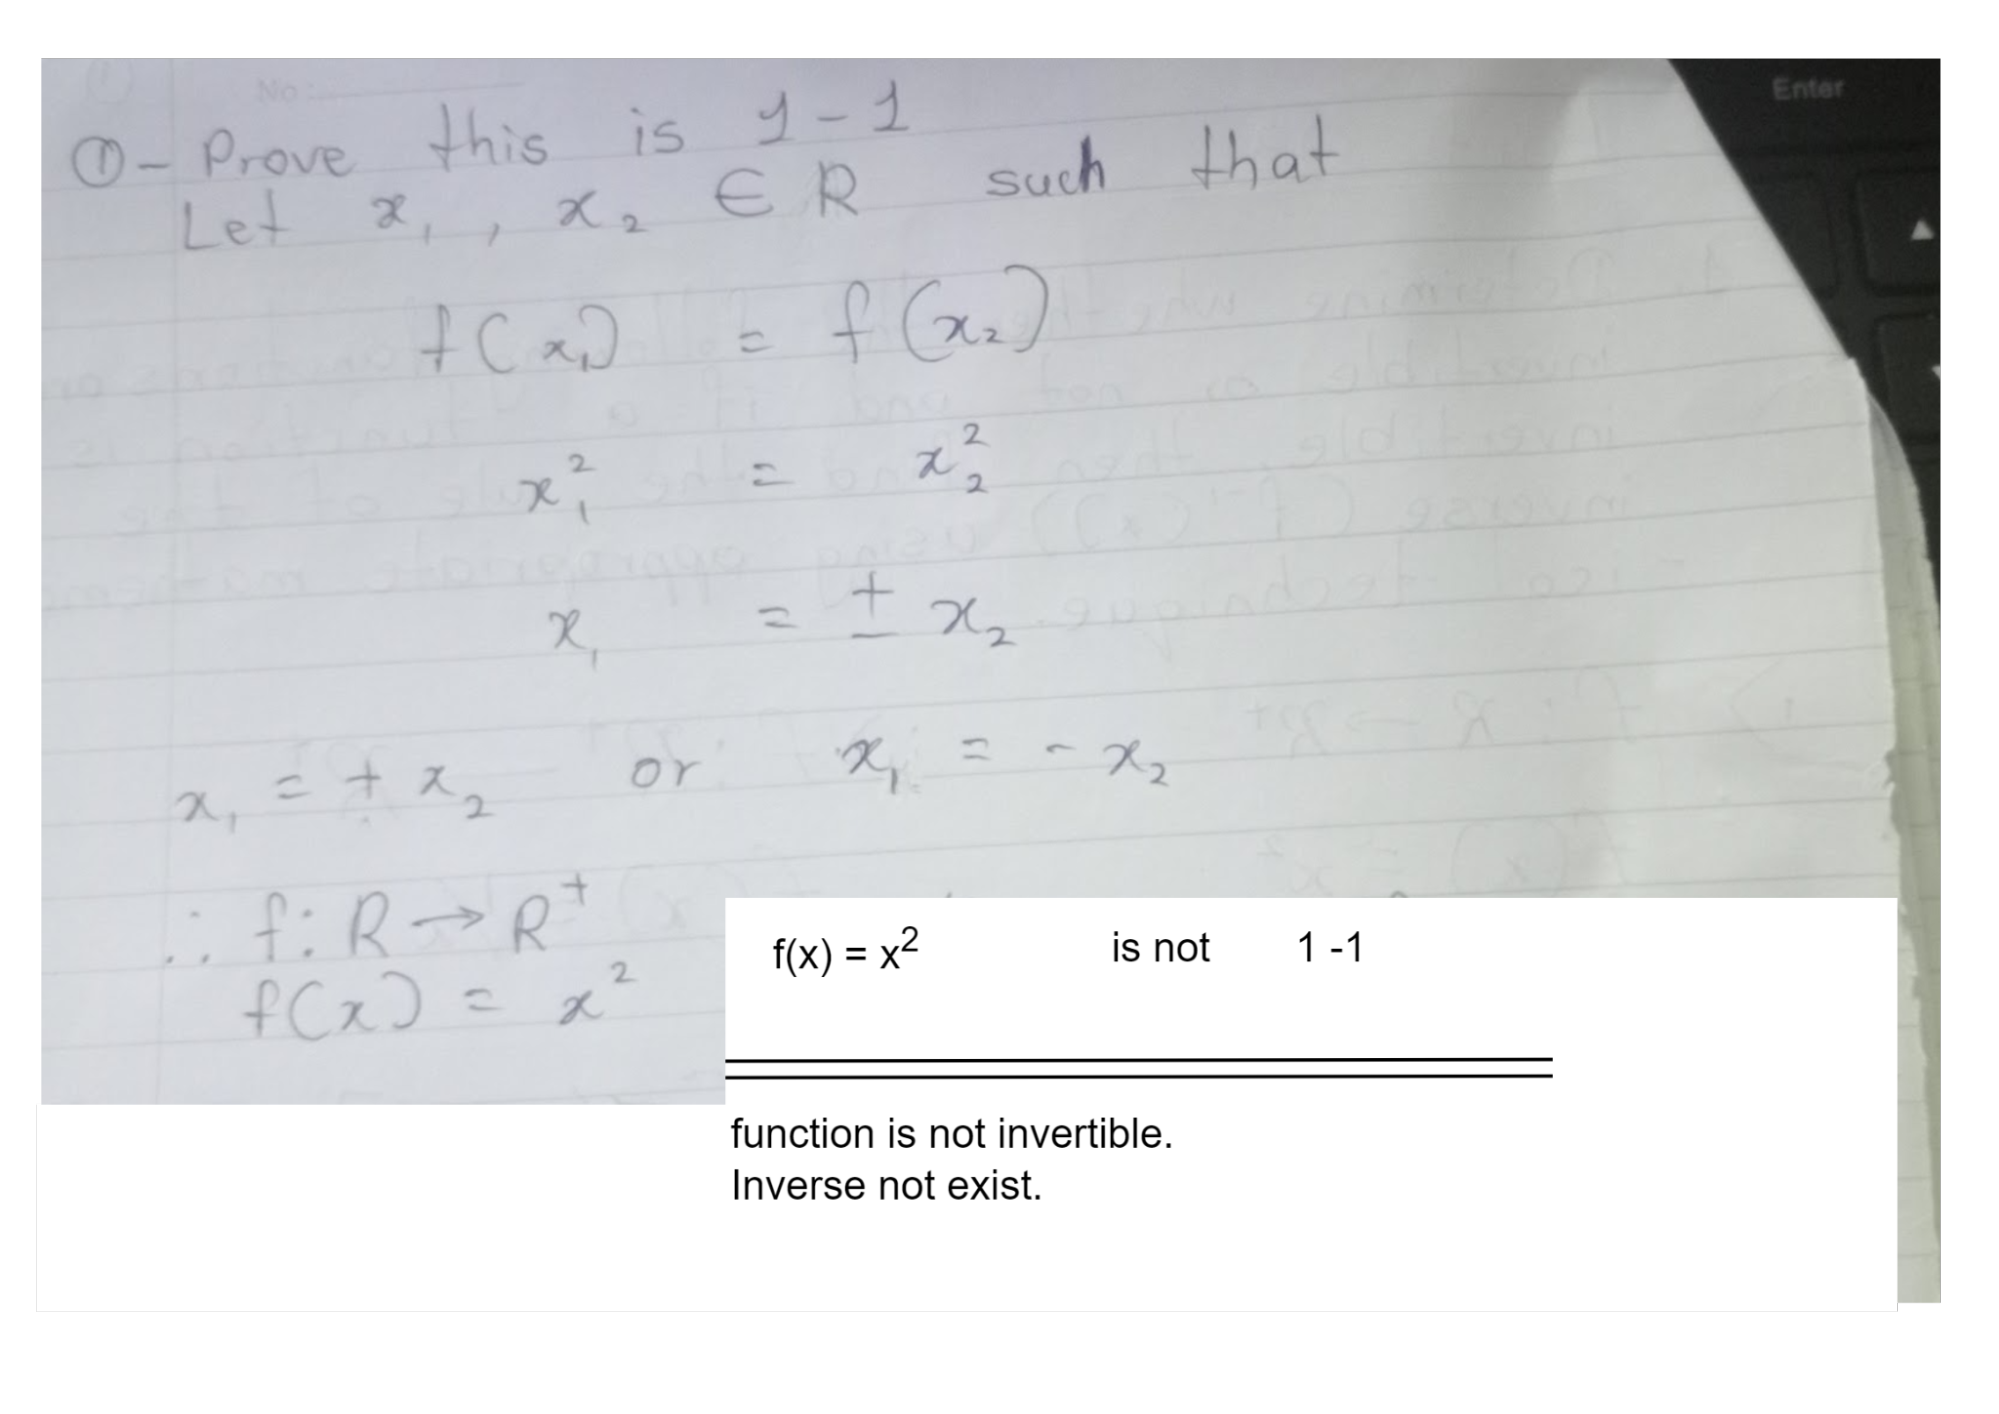 No:
Enter
①- Prove this is 1-1
Let x₁, x₂ ∈ R such that
f(x₁) = f(x₂)
x₁² = x₂²
x₁ = ± x₂
x₁ = + x₂ or x₁ = - x₂
∴ f: R → R⁺
f(x) = x²
f(x) = x² is not 1 -1
function is not invertible.
Inverse not exist.